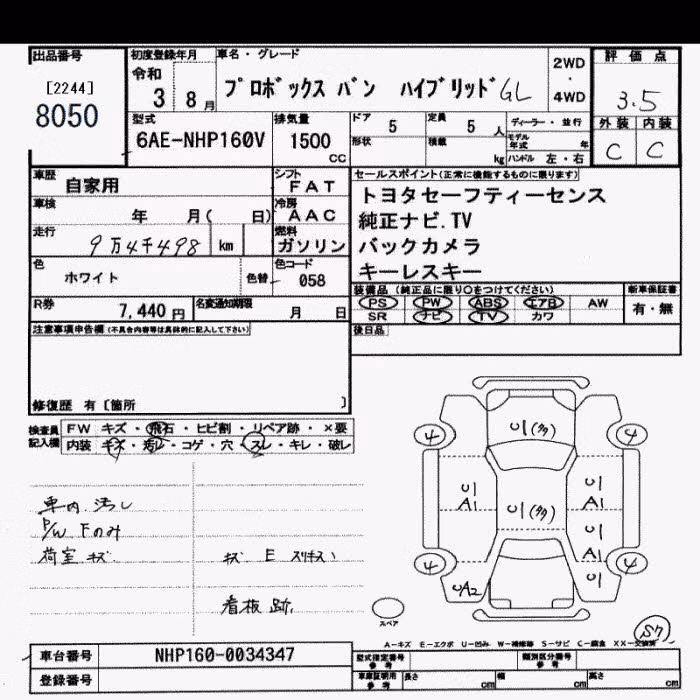 出品番号 初度登録年月 車名・グレード 評価点
[2244]
8050
令和 3 8月 プロボックス バン ハイブリッド GL 2WD・4WD 3.5
型式 排気量 ドア 5 定員 5人 ディーラー・並行 外装 内装
6AE-NHP160V 1500cc 形状 積載 kg モデル年式 年 ハンドル 左・右 C C
車歴 自家用 シフト FAT セールスポイント(正常に機能するものに限ります)
車検 年 月( 日) 冷房 AAC トヨタセーフティーセンス
純正ナビ.TV
走行 9万4千498 km 燃料 ガソリン バックカメラ
キーレスキー
色 ホワイト 色替 色コード 058 装備品(純正品に限り○をつけてください) 新車保証書
PS PW ABS エアB AW 有・無
R券 7,440円 名変通知期限 月 日 SR ナビ TV カワ
注意事項申告欄(不具合内容等は具体的に記入して下さい) 後日品
修復歴 有〔箇所 〕
検査員記入欄 FW キズ・飛石・ヒビ割・リペア跡・×要
内装 キズ・汚レ・コゲ・穴・スレ・キレ・破レ
4 U1(多) 4
U1 A1 U1(多) U1 A1
U1 A1
4 U1 4
UA2
車内 汚レ
P/W Fのみ
荷室 キズ キズ E スリキズ
看板 跡
スペア
S7
A-キズ E-エクボ U-凹み W-補修跡 S-サビ C-腐食 XX-交換済
車台番号 NHP160-0034347 型式指定番号 参考 類別区分番号 参考
登録番号 車庫証明用 参考 長さ cm 幅 cm 高さ cm